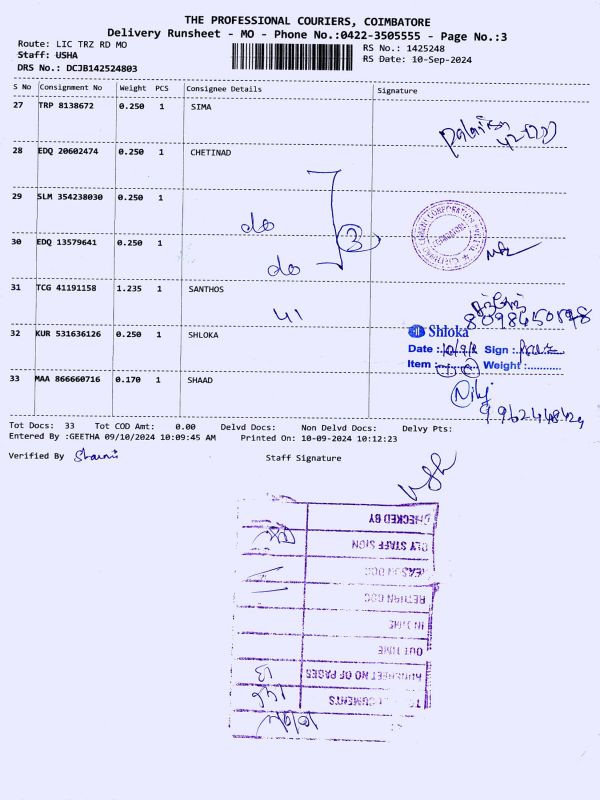 THE PROFESSIONAL COURIERS, COIMBATORE
Delivery Runsheet - MO - Phone No.:0422-3505555 - Page No.:3
Route: LIC TRZ RD MO
RS No.: 1425248
Staff: USHA
RS Date: 10-Sep-2024
DRS No.: DCJB142524803
S No Consignment No Weight PCS Consignee Details Signature
27 TRP 8138672 0.250 1 SIMA
28 EDQ 20602474 0.250 1 CHETINAD
29 SLM 354238030 0.250 1
do
3
30 EDQ 13579641 0.250 1
do
31 TCG 41191158 1.235 1 SANTHOS
41
8098450598
32 KUR 531636126 0.250 1 SHLOKA
Shloka
Date : Sign :
Item : Weight :...........
33 MAA 866660716 0.170 1 SHAAD
Tot Docs: 33 Tot COD Amt: 0.00 Delvd Docs: Non Delvd Docs: Delvy Pts:
Entered By :GEETHA 09/10/2024 10:09:45 AM Printed On: 10-09-2024 10:12:23
Verified By
Staff Signature
CHECKED BY
DLY STAFF SIGN
REASON DOC
RETURN DOC
IN TIME
OUT TIME
RUNSHEET NO OF PAGES